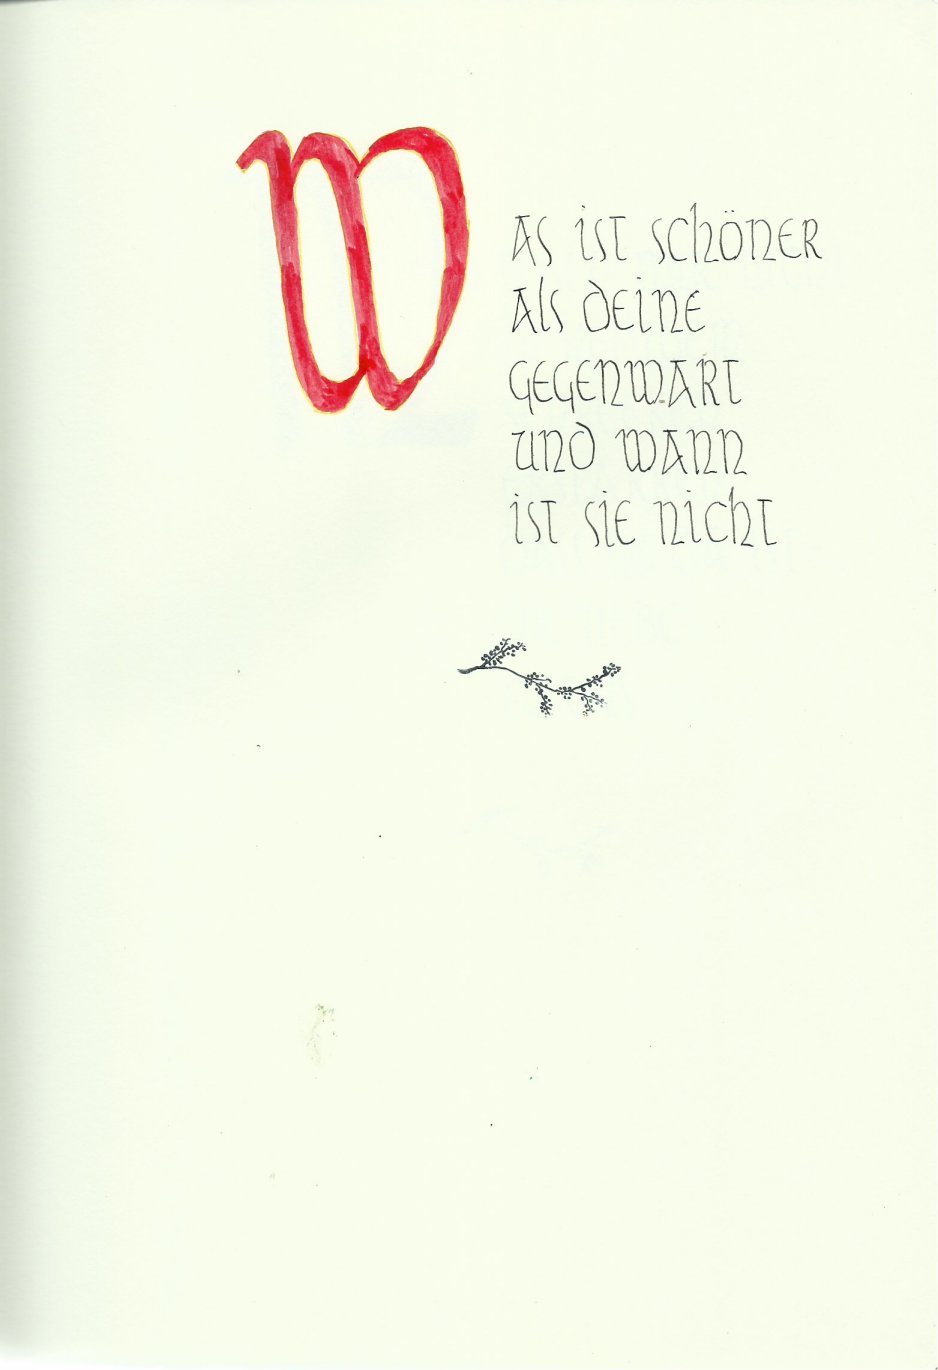 Was ist schöner
als deine
Gegenwart
und wann
ist sie nicht